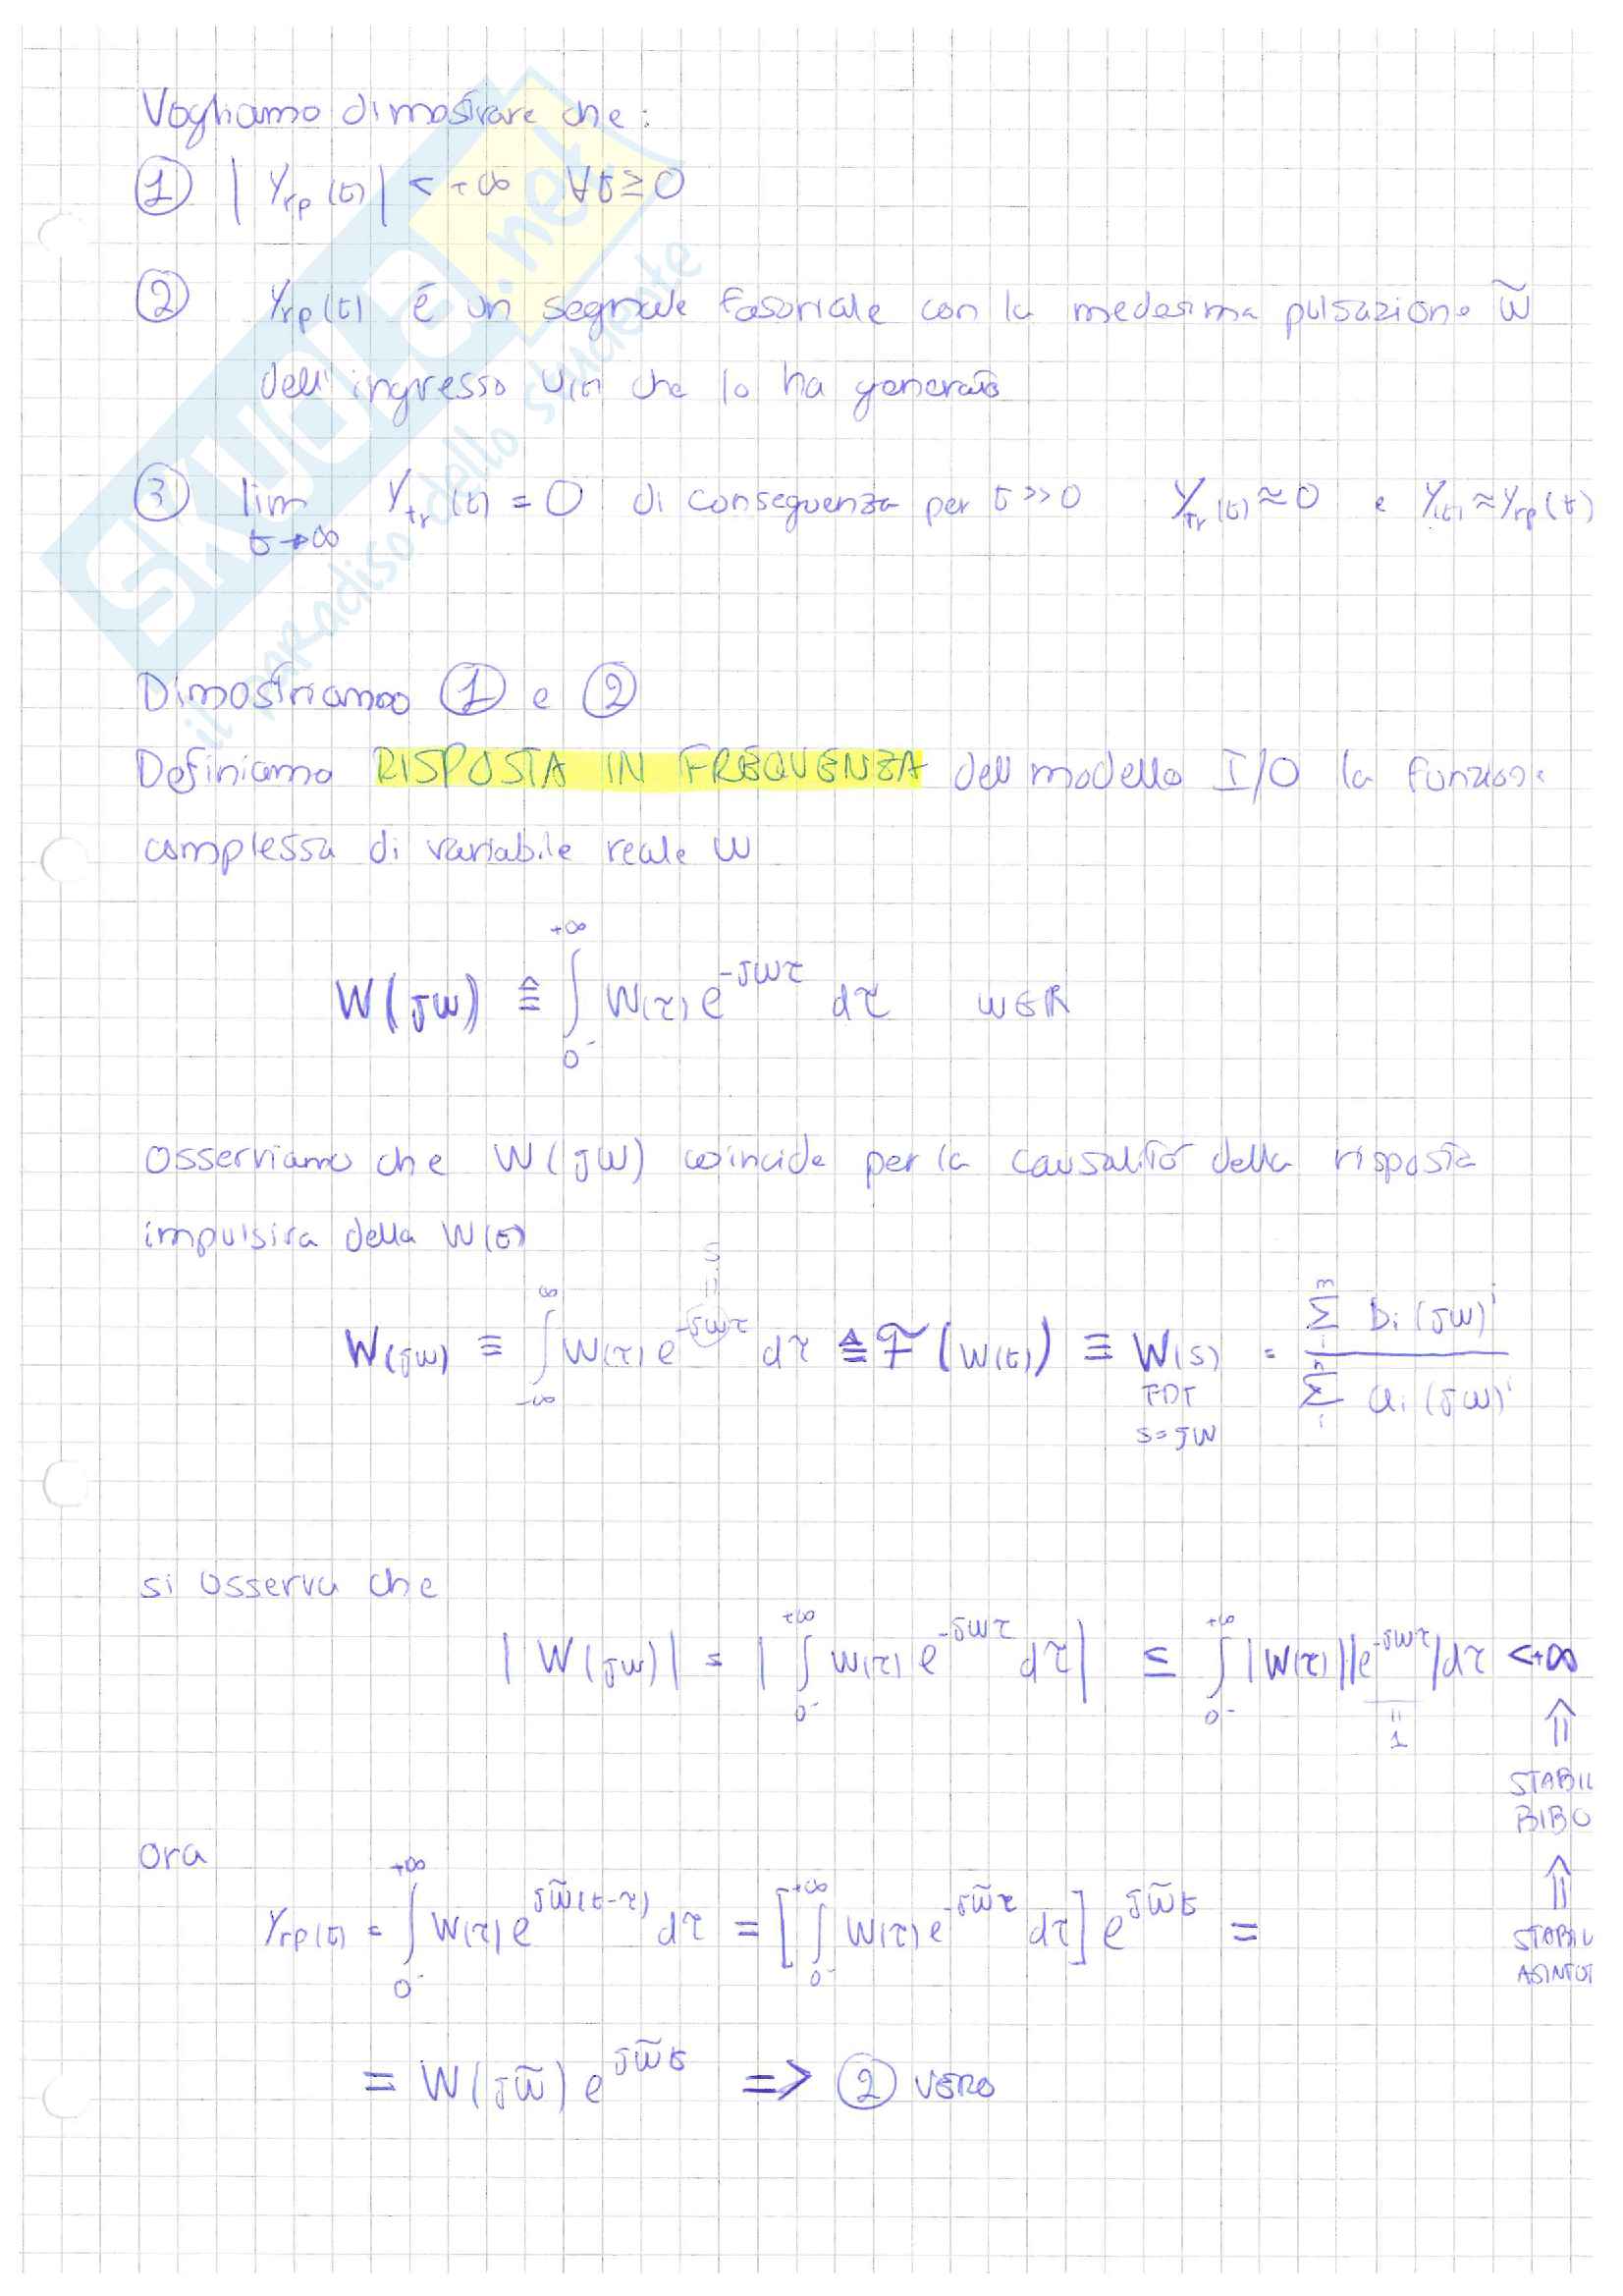 Vogliamo dimostrare che:
① | y_rp(t) | < +∞ ∀t ≥ 0
② y_rp(t) è un segnale fasoriale con la medesima pulsazione ω̃
dell'ingresso u(t) che lo ha generato
③ lim t→∞ y_tr(t) = 0 di conseguenza per t >> 0 y_tr(t) ≈ 0 e y(t) ≈ y_rp(t)
Dimostriamo ① e ②
Definiamo RISPOSTA IN FREQUENZA del modello I/O la funzione
complessa di variabile reale ω
W(jω) ≜ ∫_{0⁻}^{+∞} w(τ) e^{-jωτ} dτ ω∈ℝ
Osserviamo che W(jω) coincide per la causalità della risposta
impulsiva della w(t)
W(jω) ≡ ∫_{-∞}^{∞} w(τ) e^{-jωτ} dτ ≜ F(w(t)) ≡ W(s) = Σ_i^m b_i (jω)^i / Σ_i^n a_i (jω)^i
= s
FDT
s=jω
si osserva che
| W(jω) | = | ∫_{0⁻}^{+∞} w(τ) e^{-jωτ} dτ | ≤ ∫_{0⁻}^{+∞} |w(τ)| |e^{-jωτ}| dτ < +∞
= 1
⇑
STABIL
BIBO
⇑
STABIL
ASINTOT
ora
y_rp(t) = ∫_{0⁻}^{+∞} w(τ) e^{jω̃(t-τ)} dτ = [ ∫_{0⁻}^{+∞} w(τ) e^{-jω̃τ} dτ ] e^{jω̃t} =
= W(jω̃) e^{jω̃t} => ② VERO
SKUOLA.net
il paradiso dello studente